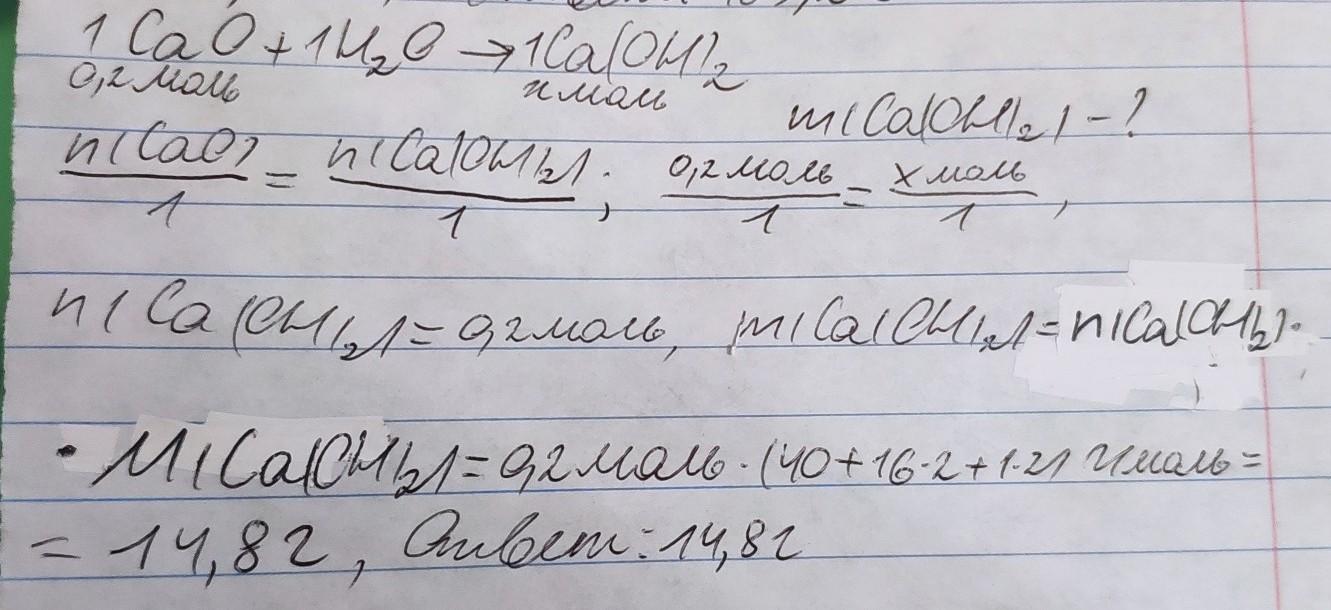 1CaO+1H₂O→1Ca(OH)₂
0,2моль xмоль
m(Ca(OH)₂)-?
n(CaO)/1=n(Ca(OH)₂)/1; 0,2моль/1=xмоль/1,
n(Ca(OH)₂)=0,2моль, m(Ca(OH)₂)=n(Ca(OH)₂)·
·M(Ca(OH)₂)=0,2моль·(40+16·2+1·2) г/моль=
=14,8г, Ответ:14,8г